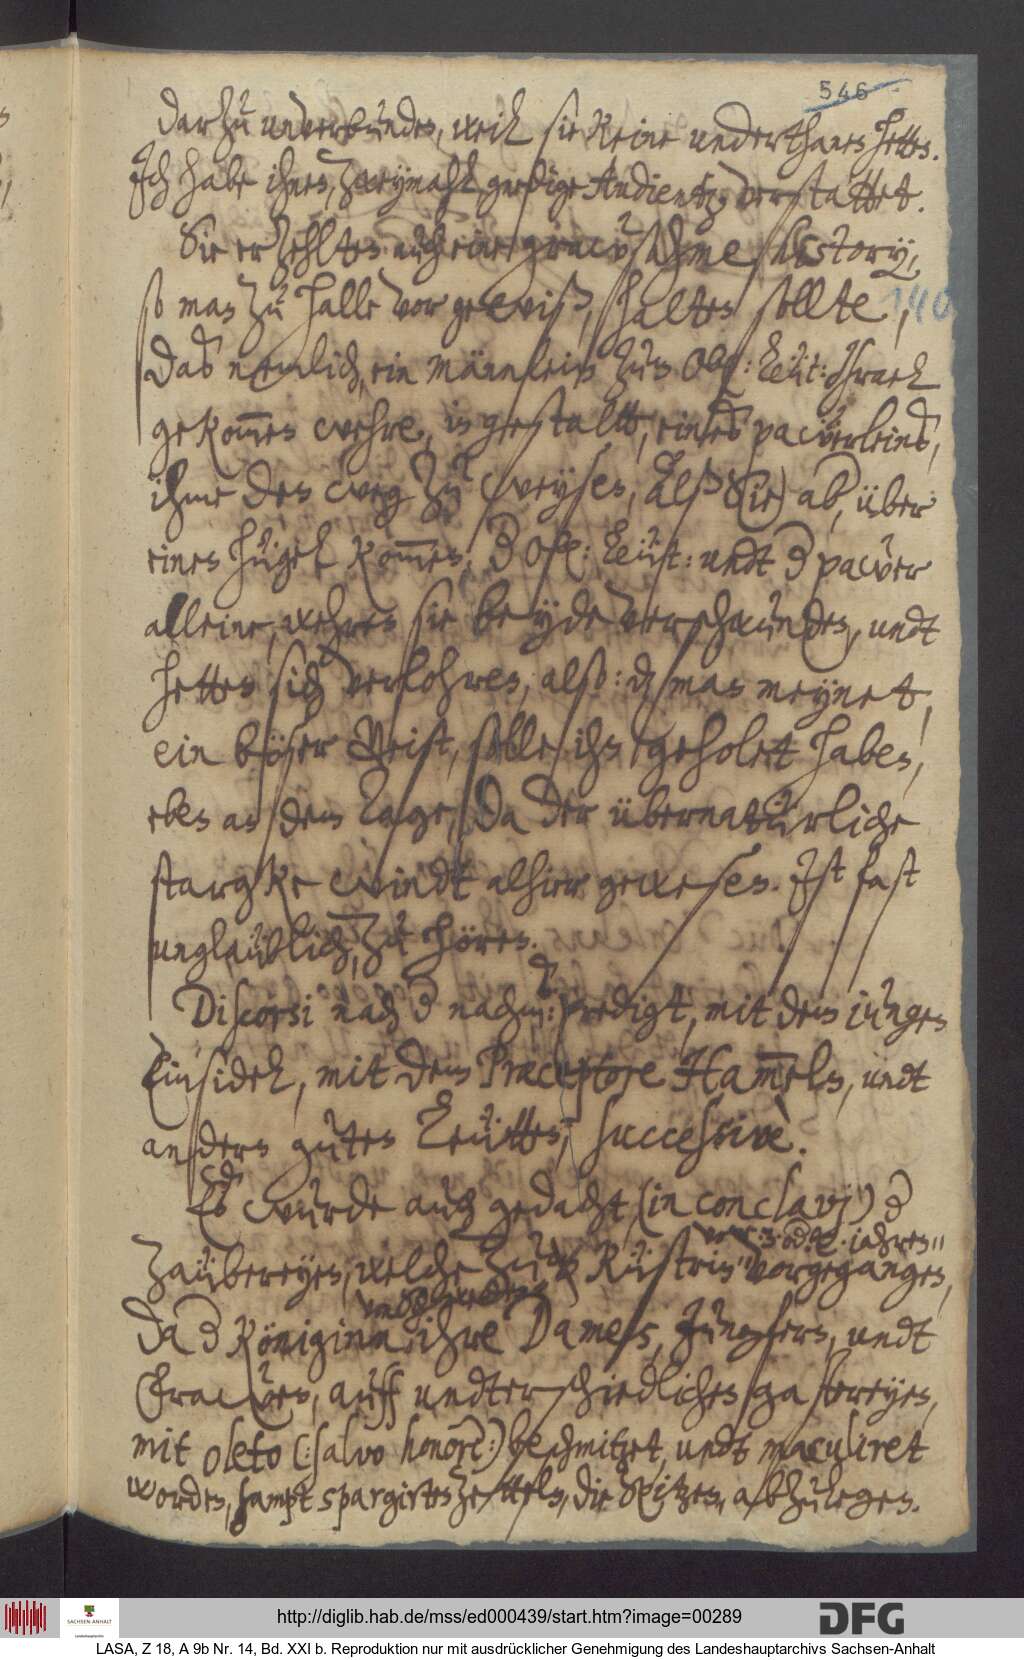 546
darzu unverbunden, weil sie keine underthanen hetten.
Ich habe ihnen, zweymahl gnedige Audientz, verstattet.
Sie erzehlten auch eine grausahme history,
so man zu Halle vor gewiß, halten sollte,
140
Das nemlich, ein Männlein zum Ob: Leüt: Israel
gekommen wehre, in gestaldt, eines pawerleins,
ihme den weg zu weysen, Alß (Sie) ab, über
einen hügel kommen, der Ob: Leüt: undt der pawer
alleine, wehren sie beyde verschwunden, undt
hetten sich verlohren, also: daß man meynet,
ein böser Geist, solle ihn geholet haben,
eben an dem Tage, Da der übernatürliche
stargke windt alhier gewesen. Ist fast
unglaüblich, zu hören.
Discorsi nach der nachm: predigt, mit dem iungen
Einsidel, mit dem Præceptore Hammeln, undt
andern guten Leütten, successivè.
Es wurde auch gedacht, (in conclavj) der
vor 3 od: 4 iahren
Zaübereyen, welche zu Küstrin vorgegangen,
Da der Königinn, ihre Damens, Jungfern, undt
Frawen, auff undterschiedlichen gastereyen,
mit oleto (: salvo honore :) beschmitzet, undt maculiret
worden, sampt spargirten Zetteln, die Spitzen, abzulegen.
http://diglib.hab.de/mss/ed000439/start.htm?image=00289
DFG
SACHSEN-ANHALT
LASA, Z 18, A 9b Nr. 14, Bd. XXI b. Reproduktion nur mit ausdrücklicher Genehmigung des Landeshauptarchivs Sachsen-Anhalt